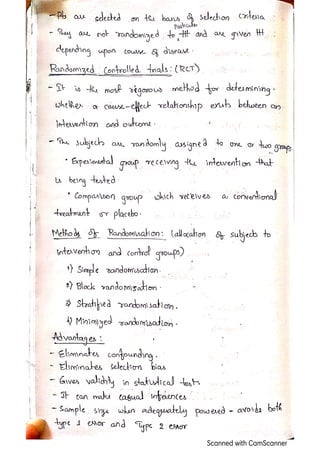 - Pts are selected on the basis of selection criteria
particular
- They are not randomized to ttt and are given ttt
depending upon course of disease.
Randomized Controlled trials: (RCT)
- It is the most rigorous method for determining.
whether a cause-effect relationship exists between an
Intervention and outcome.
- The subjects are randomly assigned to one or two groups
• Experimental group receiving the intervention that
is being tested
• Comparison group which receives a conventional
treatment or placebo.
Methods of Randomisation: (allocation of subjects to
intervention and control groups)
1) Simple randomisation.
2) Block randomisation.
3) Stratified randomisation.
4) Minimized randomisation.
Advantages:
- Eliminates confounding.
- Eliminates selection bias
- Gives validity in statistical tests
- It can make casual inferences
- Sample size when adequately powered - avoids both
type 1 error and Type 2 error
Scanned with CamScanner